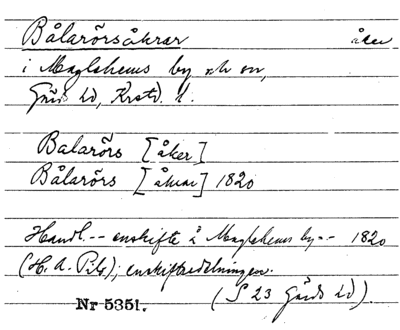 Bålarörsåkrar åker
i Maglehems by och sn,
Gärds hd, Krstd. l.
Balarörs [åker]
Bålarörs [åkrar] 1820
Handl. -- enskifte å Maglehems by -- 1820
(H. A. Pihl); enskiftesdelningen.
Nr 5351. (S 23 Gärds hd).